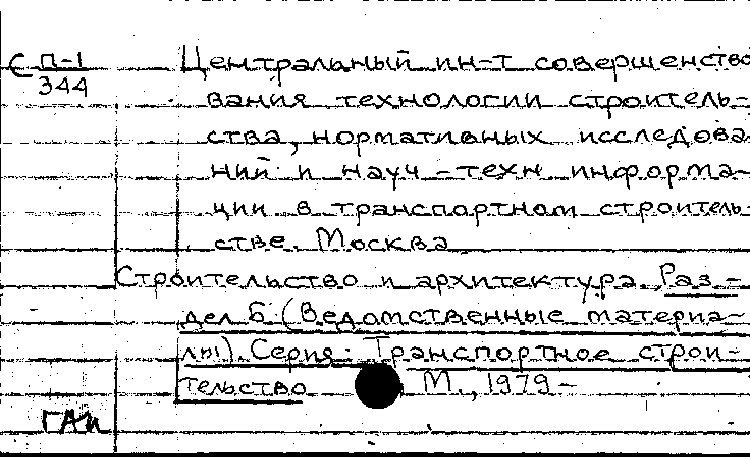 С П-1
344
Центральный ин-т совершенство
вания технологии строитель-
ства, нормативных исследова
ний и науч-техн информа-
ции в транспортном строитель
стве. Москва
Строительство и архитектура. Раз-
дел Б (Ведомственные материа-
лы). Серия: Транспортное строи-
тельство М., 1979-
ГАИ